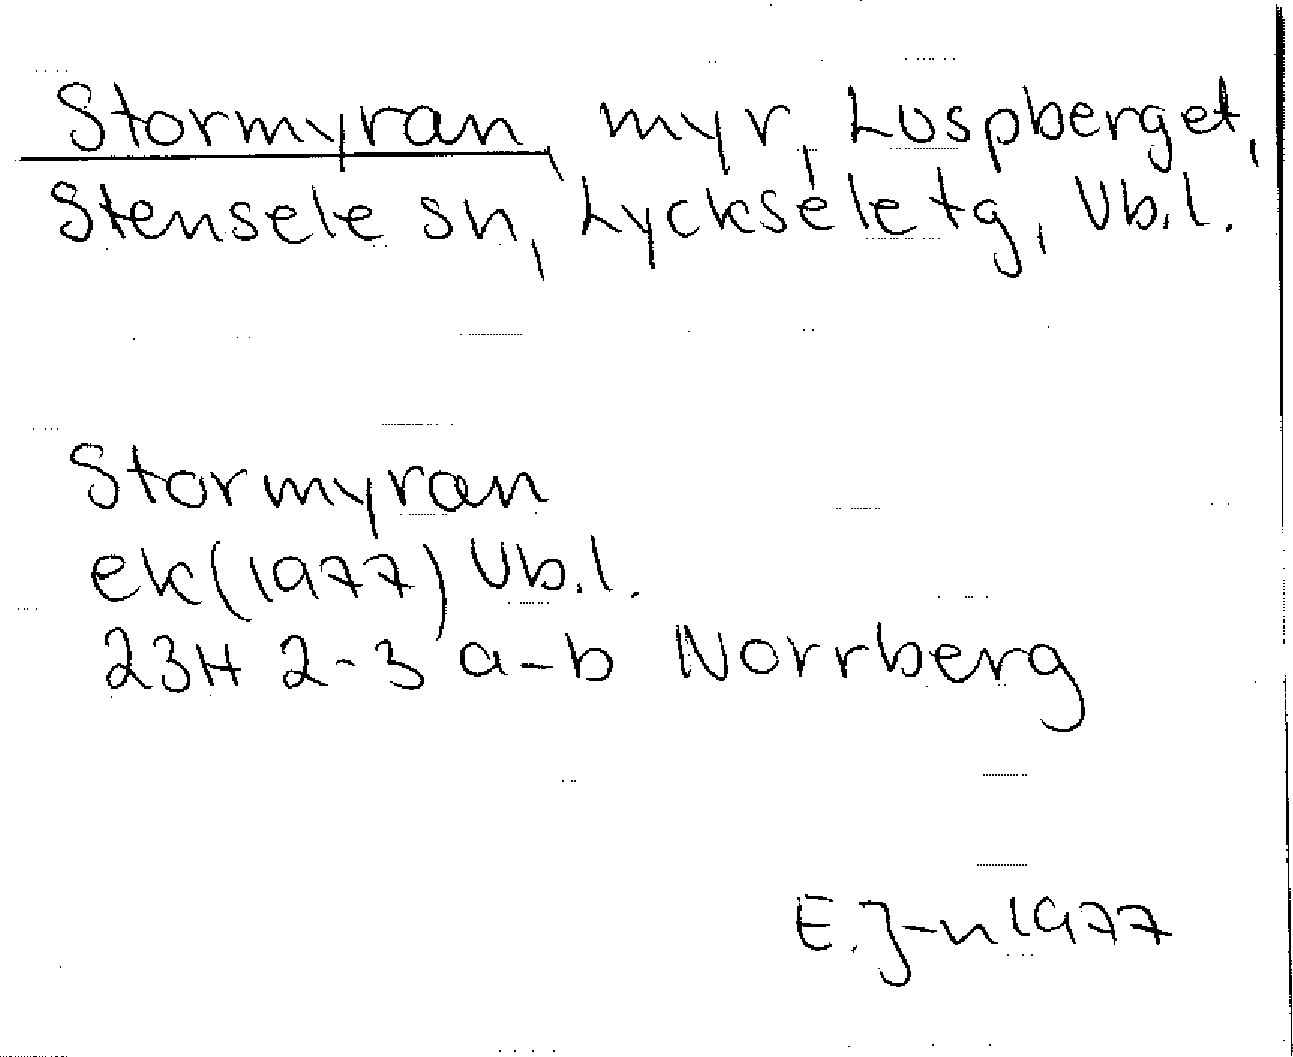 Stormyran, myr, Luspberget,
Stensele sn, Lycksele tg, Vb.l.
Stormyran
ek(1977) Vb.l.
23H 2-3 a-b Norrberg
E.J-n 1977